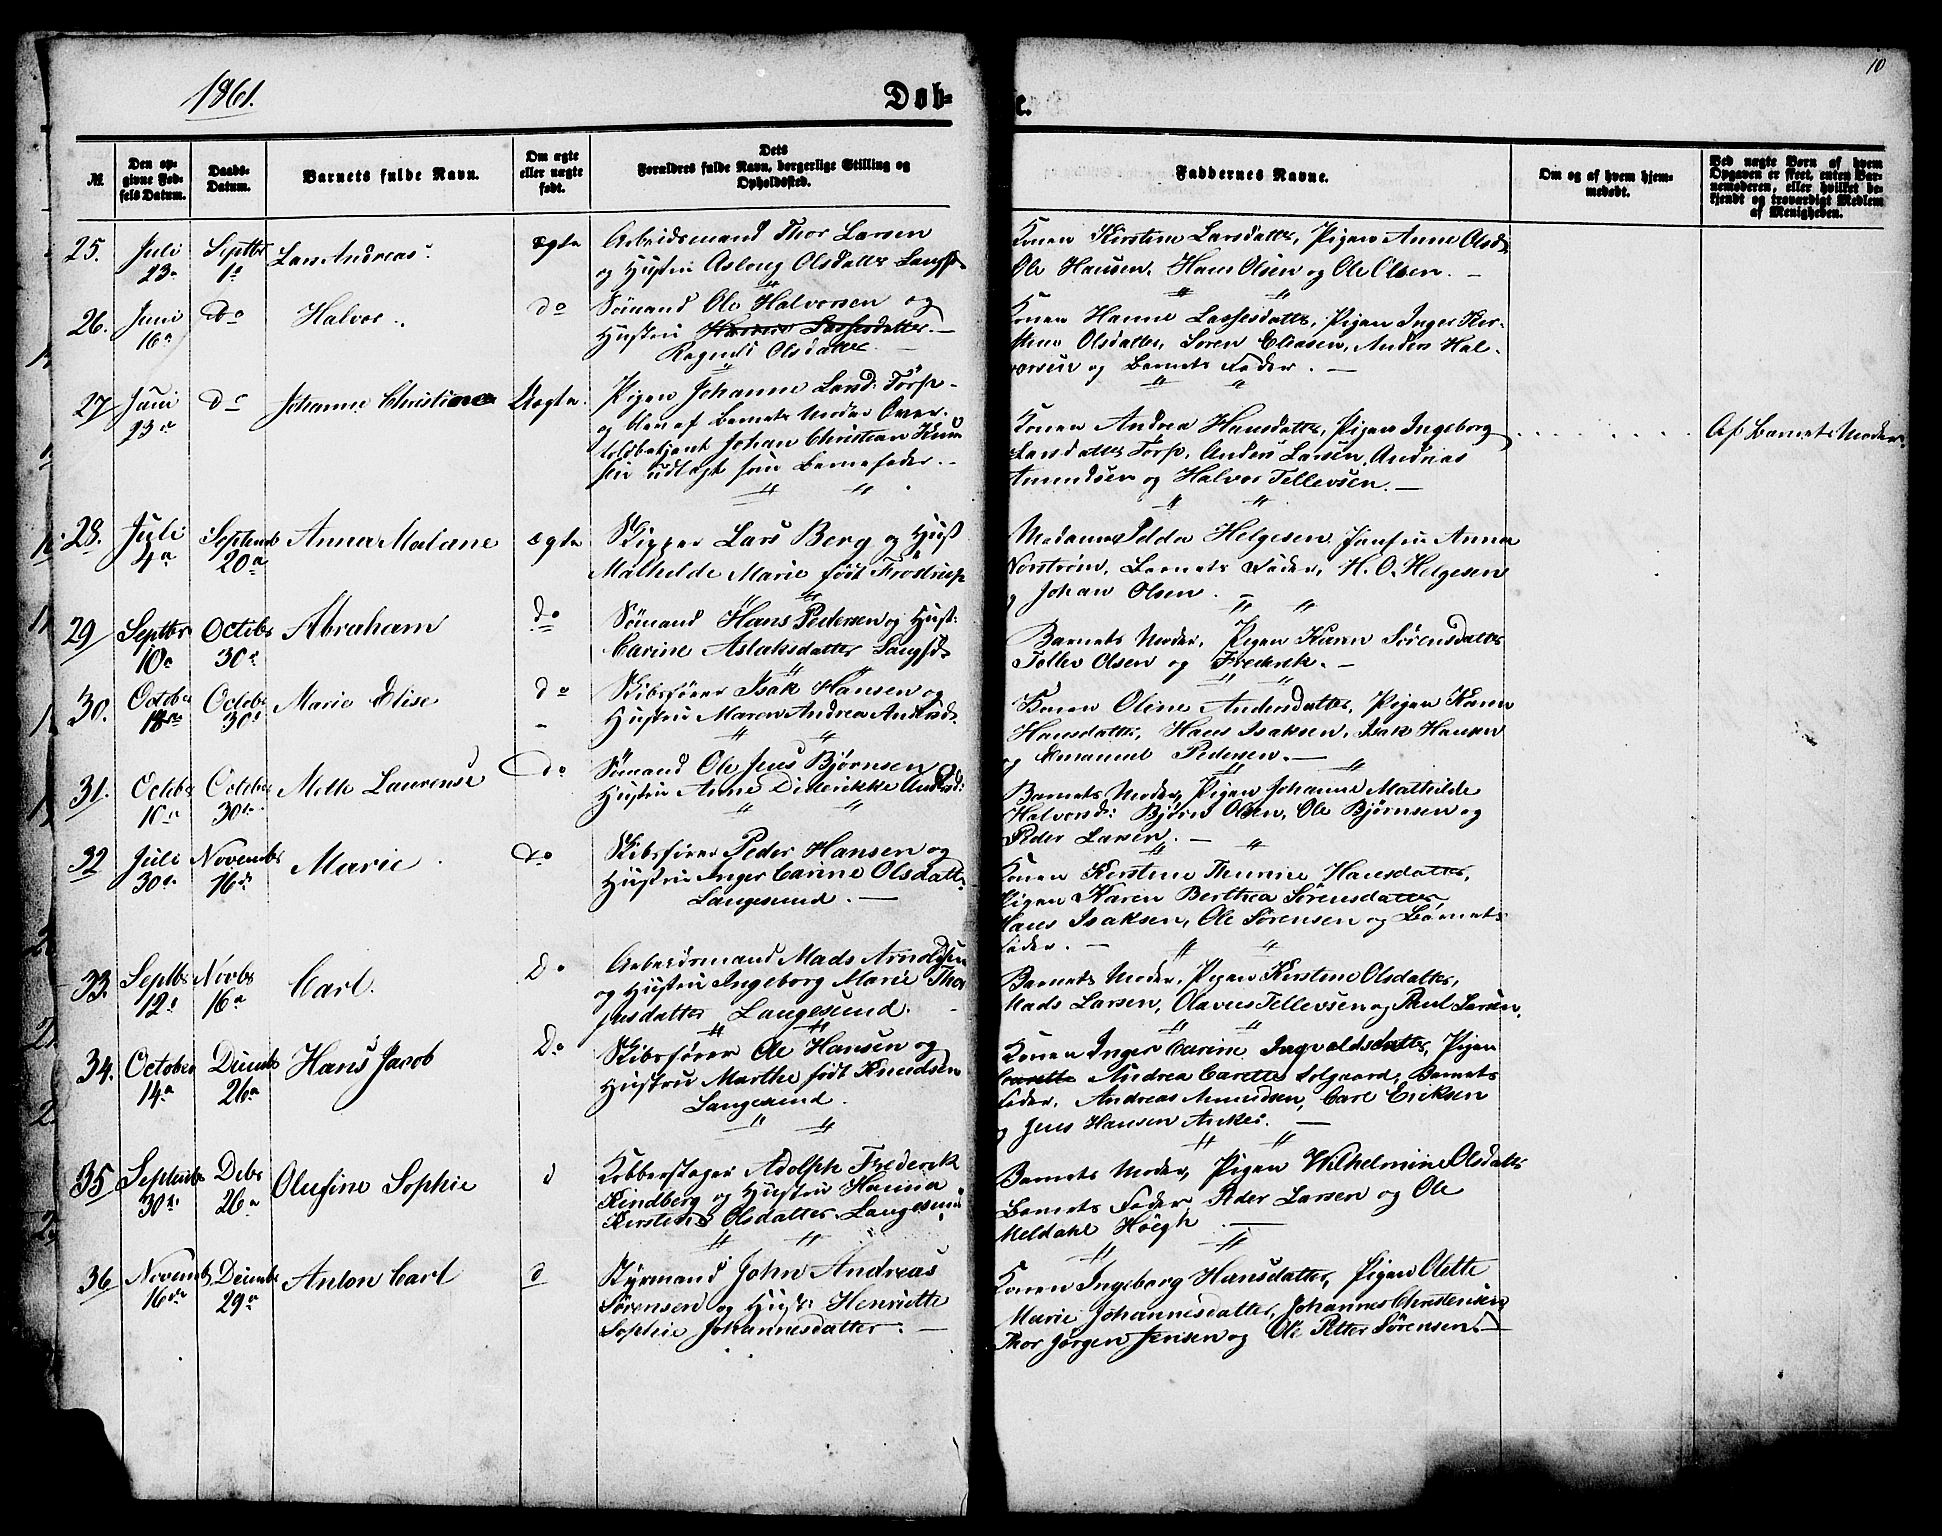 1861.
Døb-
e.
10
№
Den op-
givne Fød-
sels Datum.
Daabs-
Datum.
Barnets fulde Navn.
Om ægte
eller uægte
født.
Dets
Forældres fulde Navn, borgerlige Stilling og
Opholdssted.
Faddernes Navne.
Om og af hvem hjem-
medøbt.
Ved uægte Børn af hvem
Opgaven er skeet, enten Bar-
nemoderen, eller hvilket be-
kjendt og troværdigt Medlem
af Menigheden.
25.
Juli
23
Septbr
1
Lars Andreas.
ægte
Arbeidsmand Thor Larsen
og Hustru Aslaug Olsdatter
Konen Kirstine Larsdatter, Pigen Anne Olsd
Ole Hansen, Hans Olsen og Ole Olsen. -
26.
Juni
16
do
Halvor.
do
Sømand Ole Halvorsen og
Hustru Hanne Lassesdatter. -
Ragnild Olsdatter
Konen Hanne Lassesdatter, Pigen Inger Kir-
stine Olsdatter, Søren Eliasen, Anders Hal-
vorsen og Barnets Fader. -
27
Juni
23
do
Johanne Christine
Uægte.
Pigen Johanne Larsd: Torp -
og blev af Barnets Moder Over-
toldbetjent Johan Christian Knud
sen udlagt som Barnefader. -
Konen Andrea Hansdatter, Pigen Ingeborg
Larsdatter Torp, Anders Larsen, Andreas
Amundsen og Halvor Tellevsen. -
Af Barnets Moder.
28.
Juli
4
Septemb
20
Anna Malane
ægte
Skipper Lars Berg og Hust
Mathilde Marie født Frostrup
Madame Helgesen, Jomfru Anna
Norstrøm, Barnets Fader, H. O. Helgesen
og Johan Olsen. -
29
Septbr
10
Octobr
30
Abraham
do
Sømand Hans Pedersen og Hust:
Carine Aslaksdatter Langsd
Barnets Moder, Pigen Karen Sørensdatter
Tellev Olsen og Frederik. -
30.
October
18
Octobr
30
Marie Elise
do
Skibsfører Isak Hansen og
Hustru Maren Andrea Andersd.
Konen Oline Andersdatter, Pigen Karen
Hansdatter, Hans Isaksen, Isak Hansen
og Emanuel Pedersen. -
31.
Octobr
10
Octobr
30
Mette Laurense
do
Sømand Ole Jens Bjørnsen og
Hustru Anne Diderikke Andersd:
Barnets Moder, Pigen Johanne Mathilde
Halvorsd: Bjørn Olsen, Ole Bjørnsen og
Peder Larsen. -
32
Juli
30
Novembr
16
Marie
do
Skibsfører Peder Hansen og
Hustru Inger Carine Olsdatt
Langesund. -
Konen Kirstine Thomine Hansdatter,
Pigen Karen Berthea Sørensdatter,
Hans Isaksen, Ole Sørensen og Barnets
Fader. -
33.
Septbr
12
Novbr
16
Carl.
Do
Arbeidsmand Mads Arnoldsen
og Hustru Ingeborg Marie Tho
jusdatter Langesund.
Barnets Moder, Pigen Kirstine Olsdatter,
Mads Larsen, Olavus Tellevsen og Poul Larsen.
34.
October
14
Decemb
26
Hans Jacob
Do
Skibsfører Ole Hansen og
Hustru Marthe født Knudsen
Langesund.
Konen Inger Carine Ingvaldsdatter, Pigen
Carette Andrea Carette Solgaard, Barnets
Fader, Andreas Amundsen, Carl Eriksen
og Jens Hansen Anker. -
35
Septembr
30
Debr
26
Olufine Sophie
d
Kobberslager Adolph Frederik
Kindberg og Hustru Hanna
Kirstine Olsdatter Langesund
Barnets Moder, Pigen Wilhelmine Olsdatter
Barnets Fader, Peder Larsen og Ole
Meldahl Höegh. -
36
Novemb
16
Decembr
29
Anton Carl
d
Styrmand John Andreas
Sørensen og Hust: Henriette
Sophie Johannesdatter. -
Konen Ingeborg Hansdatter, Pigen Olette
Marie Johannesdatter, Johannes Christensen
Thor Jørgen Jensen og Ole Petter Sørensen. -